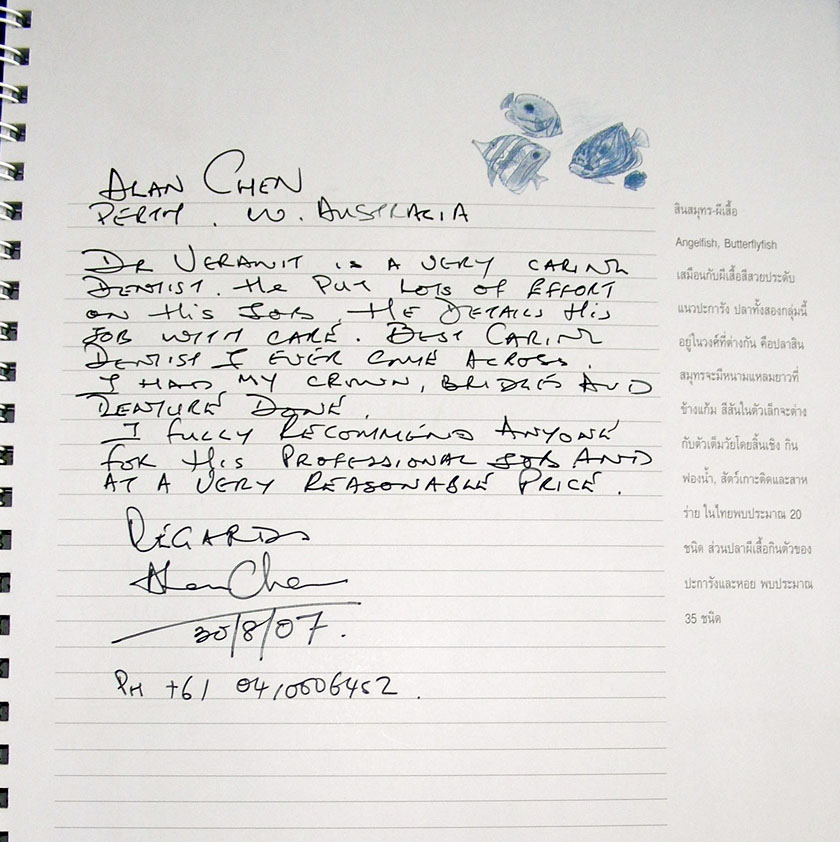 ALAN CHEN
PERTH. W. AUSTRALIA
DR VERANIT IS A VERY CARING
DENTIST. He PUT LOTS OF EFFORT
ON His JOB. He DETAILS His
JOB WITH CARE. BEST CARING
DENTIST I EVER COME ACROSS.
I HAD MY CROWN, BRIDGES AND
DENTURE DONE.
I FULLY RECOMMEND ANYONE
FOR His PROFESSIONAL JOB AND
AT A VERY REASONABLE PRICE.
REGARDS
Alan Chen
30/8/07.
PH +61 0410006452.
สินสมุทร-ผีเสื้อ
Angelfish, Butterflyfish
เสมือนกับผีเสื้อสีสวยประดับ
แนวปะการัง ปลาทั้งสองกลุ่มนี้
อยู่ในวงศ์ที่ต่างกัน คือปลาสิน
สมุทรจะมีหนามแหลมยาวที่
ข้างแก้ม สีสันในตัวเล็กจะต่าง
กับตัวเต็มวัยโดยสิ้นเชิง กิน
ฟองน้ำ, สัตว์เกาะติดและสาห
ร่าย ในไทยพบประมาณ 20
ชนิด ส่วนปลาผีเสื้อกินตัวของ
ปะการังและหอย พบประมาณ
35 ชนิด